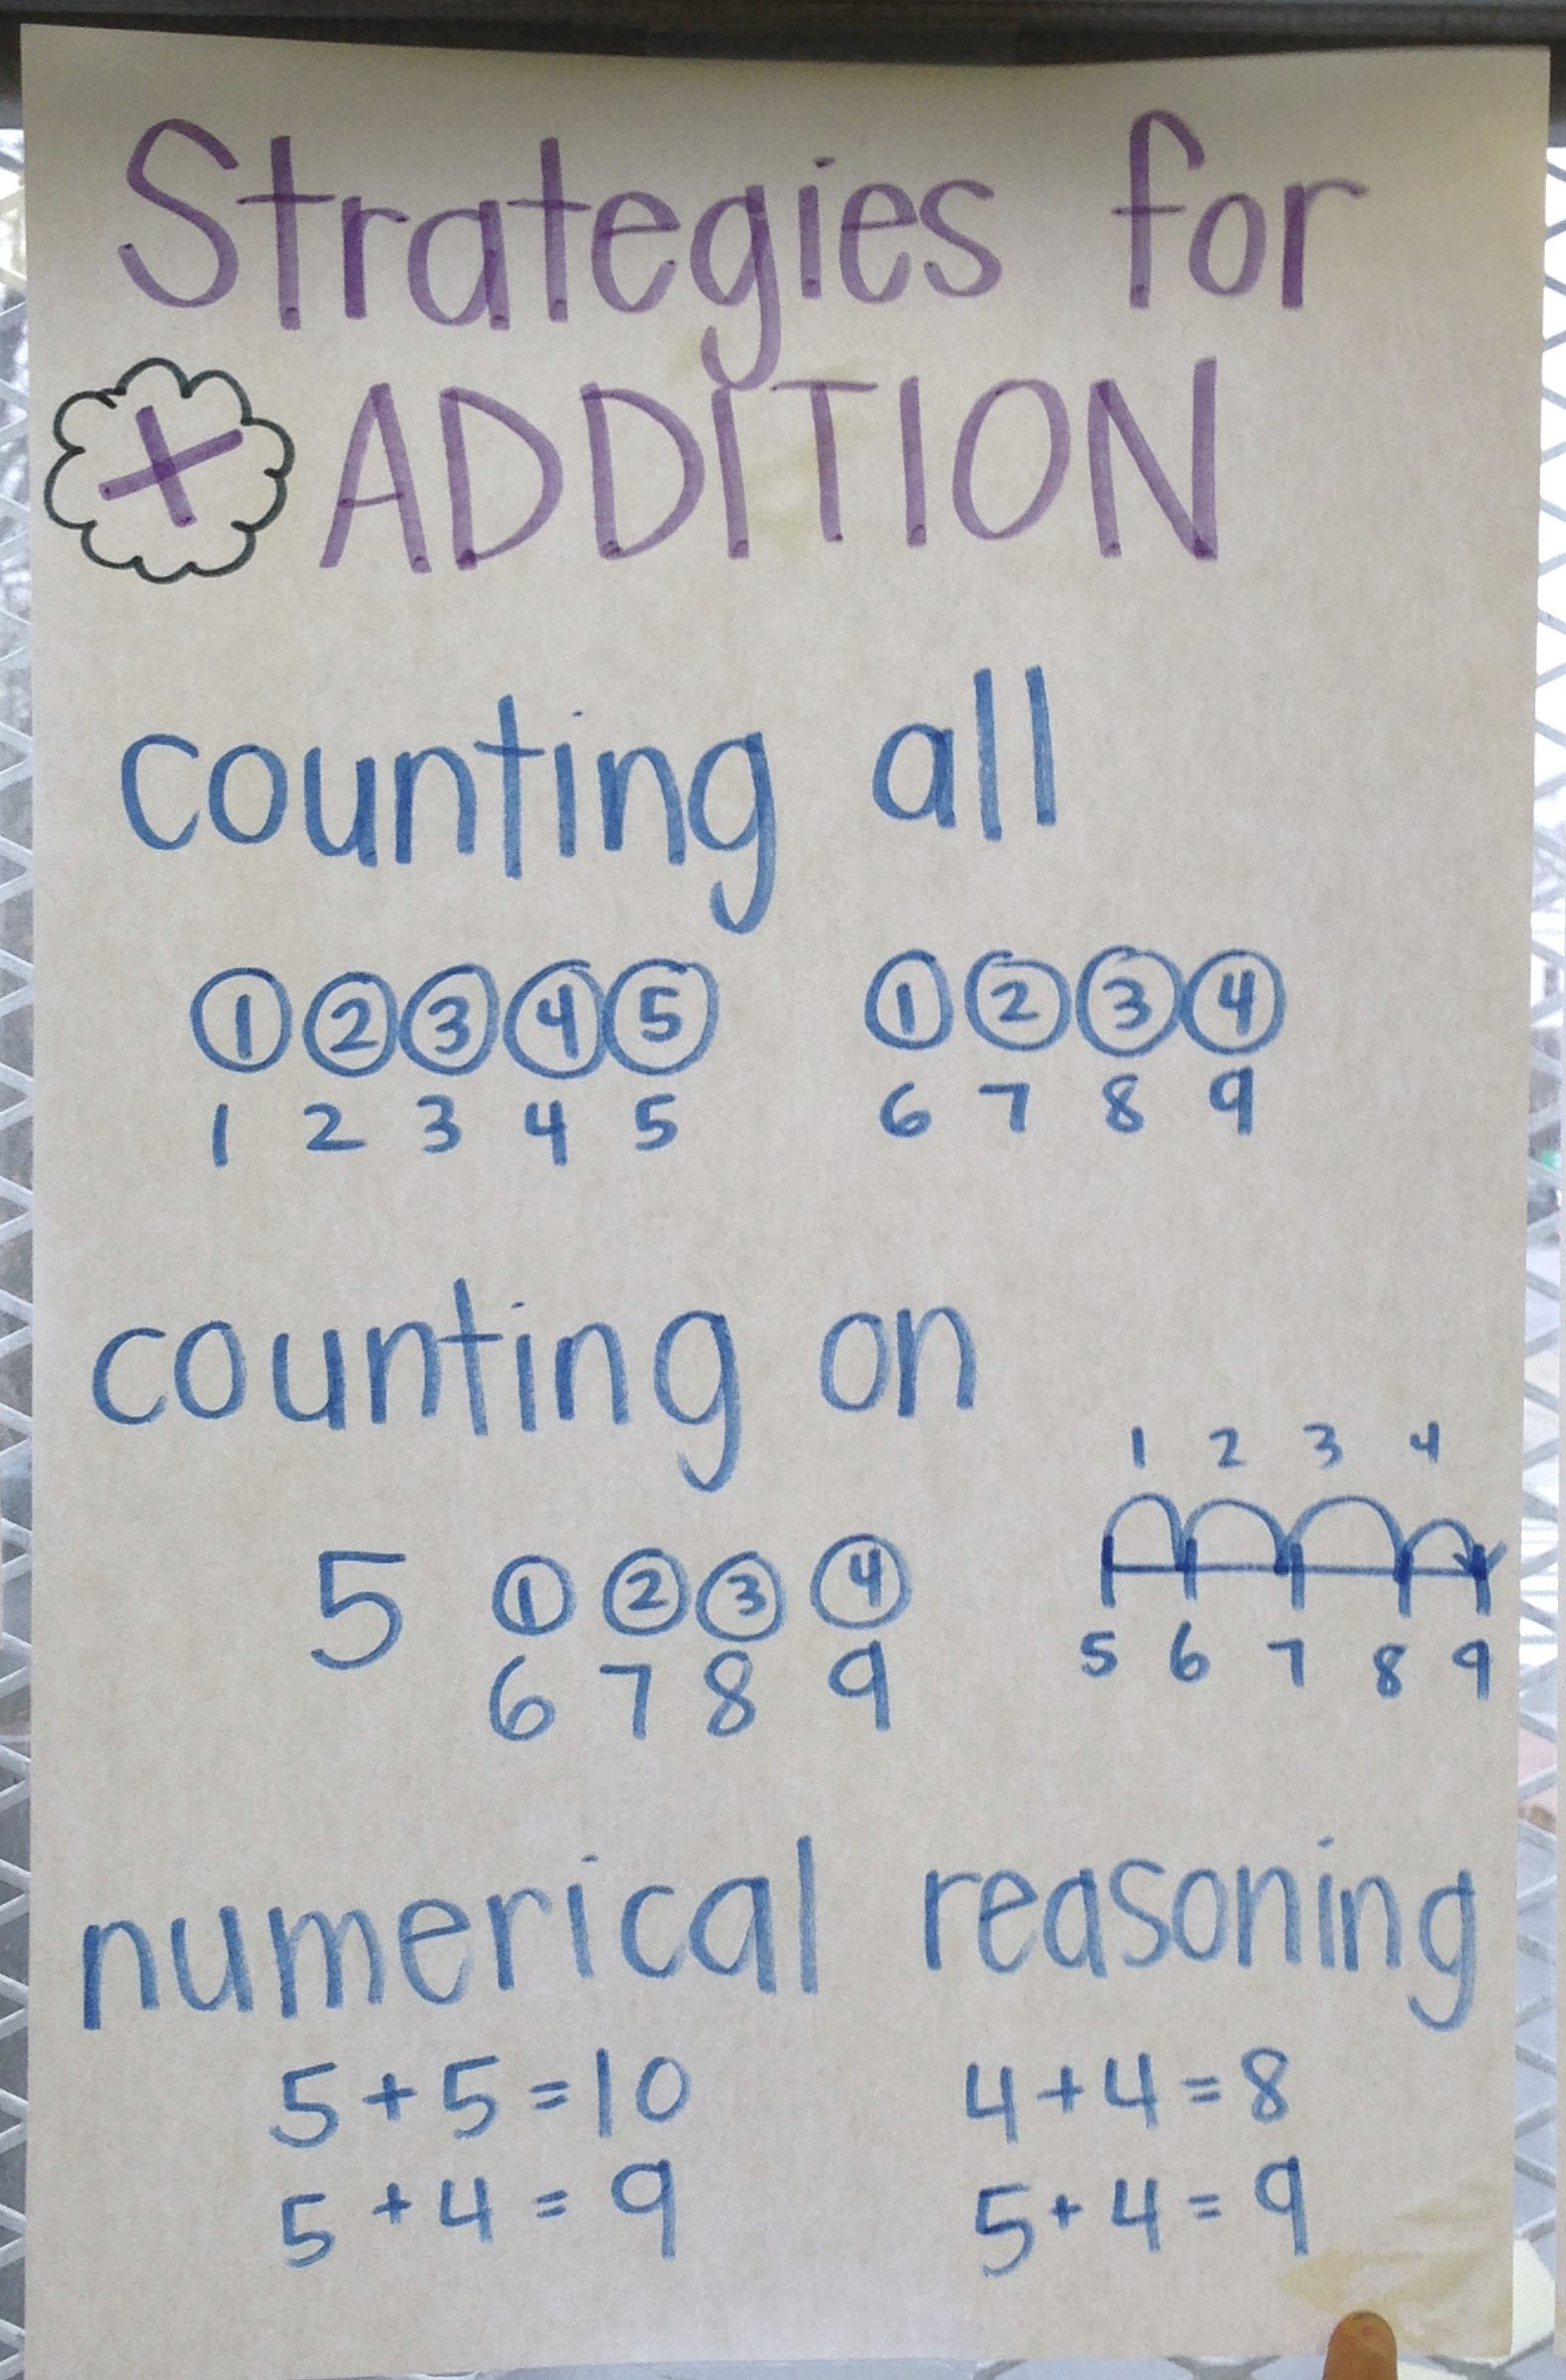 Strategies for
+ ADDITION
counting all
1 2 3 4 5 1 2 3 4
1 2 3 4 5 6 7 8 9
counting on
1 2 3 4
5 1 2 3 4
6 7 8 9 5 6 7 8 9
numerical reasoning
5+5=10 4+4=8
5+4=9 5+4=9